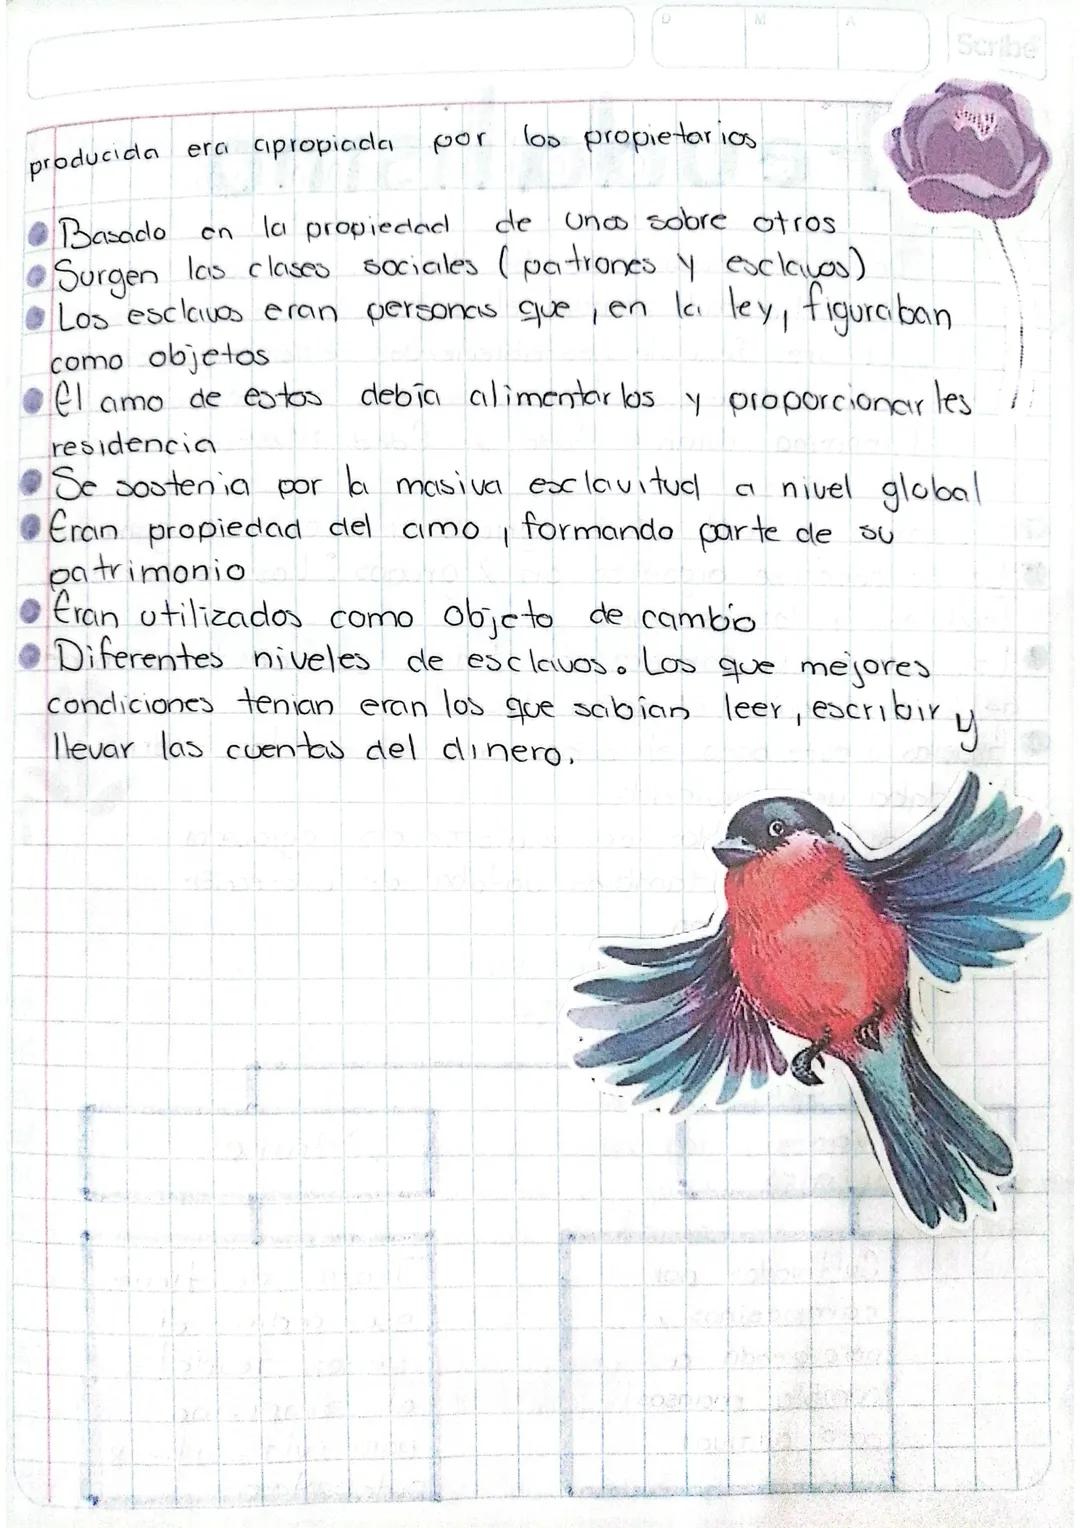 D M A
Scribe
producida era apropiada por los propietarios
Basado en la propiedad de unos sobre otros
Surgen las clases sociales (patrones y esclavos)
Los esclavos eran personas que, en la ley, figuraban
como objetos
El amo de estos debía alimentarlos y proporcionarles
residencia
Se sostenia por la masiva esclavitud a nivel global
Eran propiedad del amo, formando parte de su
patrimonio
Eran utilizados como objeto de cambio
Diferentes niveles de esclavos. Los que mejores
condiciones tenian eran los que sabían leer, escribir y
llevar las cuentas del dinero.